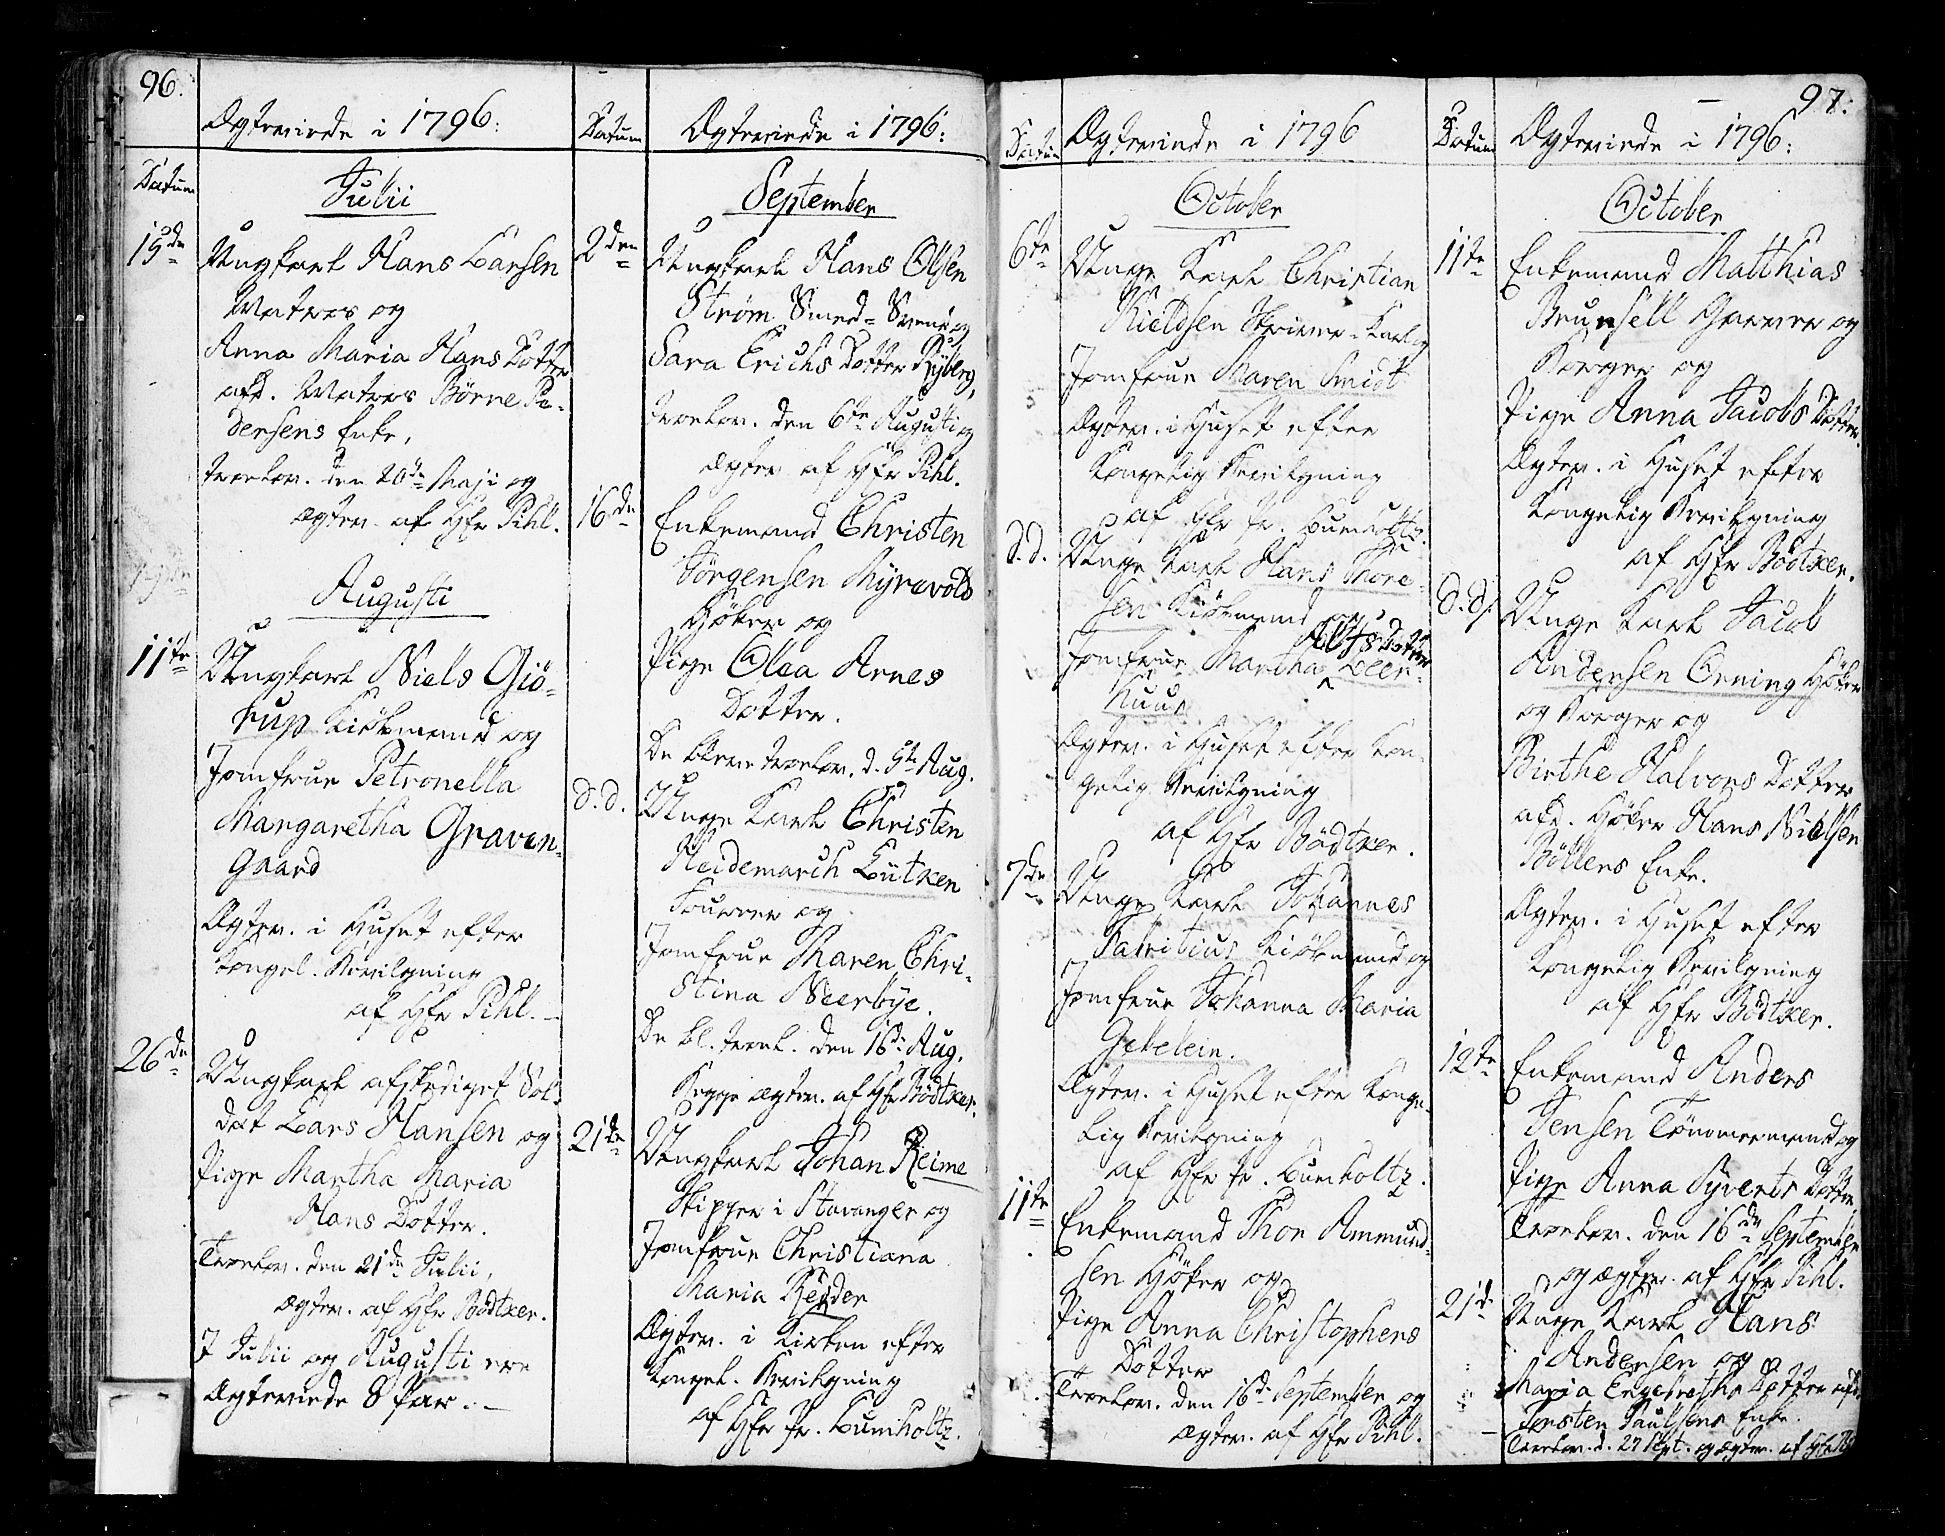 96.
Ægteviede i 1796:
Datum
Julii
15de
Ungkarl Hans Larsen
Matros og
Anna Maria Hans Dotter
afd. Matros Börne Pe-
dersens Enke,
trolov. den 20de Maji og
ægtev. af Hr Pihl.
Augusti
11te
Ungkarl Niels Giö-
rup Kiöbmand og
Jomfrue Petronella
Margaretha Graven-
gaard
Ægtev. i Huset efter
Kongel. Bevilgning
af Hr Pihl.
26de
Ungkarl afskediget Sol-
dat Lars Hansen og
Pige Martha Maria
Hans Dotter.
Trolov. den 21de Julii,
ægtev. af Hr Bödtker.
I Julii og Augusti ere
Ægteviede 8 Par.
Datum
Ægteviede i 1796:
September
2den
Ungkarl Hans Olsen
Strøm Smed-Svend og
Sara Erichs Dotter Ryberg,
trolov. den 6te Augusti og
ægtev. af Hr Pihl.
16de
Enkemand Christen
Jörgensen Myrevold
Höker og
Pige Olea Arnes
Dotter.
De bleve trolov. d. 5te Aug.
d.d.
Unge Karl Christen
Heidemarch Lütken
Fourer og
Jomfrue Maren Chri-
stina Neerbye.
De bl. trol. den 16de Aug.
Begge ægtev. af Hr Bödtker.
21de
Ungkarl Johan Reime
Skipper i Stavanger og
Jomfrue Christiana
Maria Reyder
Ægtev. i Kirken efter
Kongel. Bevilgning
af Hr Pr. Bumholtz.
97:
Datum
Ægteviede i 1796
October
6te
Unge Karl Christian
Kieldsen Skriver-Karl og
Jomfrue Maren Smidt
Ægtev. i Huset efter
Kongelig Bevilgning
af Hr Pr. Bumholtz.
d.d.
Unge Karl Hans Thore-
sen Kiöbmand og
Jomfrue Martha Alfs Dotter Leer-
huus
Ægtev. i Huset efter Kon-
gelig Bevilgning
af Hr Bödtker.
7de
Unge Karl Johannes
Fabritius Kiöbmand og
Jomfrue Johanna Maria
Gebelein.
Ægtev. i Huset efter Konge-
lig Bevilgning
af Hr Pr. Bumholtz.
11te
Enkemand Thor Ammund-
sen Höker og
Pige Anna Christophers
Dotter
Trolov. den 16de September og
ægtev. af Hr Pihl.
Datum
Ægteviede i 1796:
October
11te
Enkemand Matthias
Brunsell Garver og
Borger og
Pige Anna Jacobs Dotter.
Ægtev. i Huset efter
Kongelig Bevilgning
af Hr Bödtker.
d.d.
Unge Karl Jacob
Andersen Orning Höker
og Borger og
Birthe Halvors Dotter
afd. Höker Hans Nielsen
Böllers Enke.
Ægtev. i Huset efter
Kongelig Bevilgning
af Hr Bödtker.
12te
Enkemand Anders
Jensen Tömmermand og
Pige Anna Syverts Dotter
Trolov. den 16de September
og ægtev. af Hr Pihl.
21de
Unge Karl Hans
Andersen og
Maria Engebreths Dotter afd.
Torsten Paulsens Enke.
Trolov. d. 27 Sept. og ægtev. af Hr